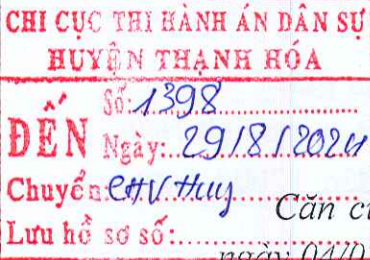 CHI CỤC THI HÀNH ÁN DÂN SỰ
HUYỆN THẠNH HÓA
ĐẾN
Số: 1398
Ngày: 29/8/2024
Chuyển: CHV Huy
Lưu hồ sơ số:
Căn cứ
ngày 04/0